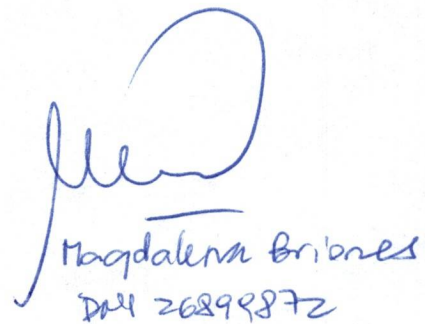 Magdalena Briones
DNI 26899872